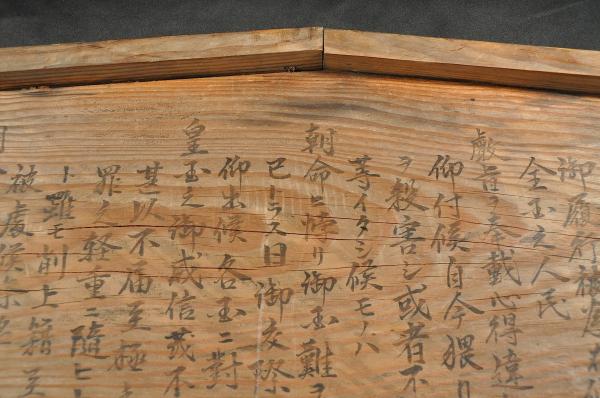 御履行被為在
全国之人民
叡旨ヲ奉戴心得違
仰付候自今猥リ
ヲ殺害シ或者不
等イタシ候モノハ
朝命ニ悖リ御国難ヲ
已ナラス一旦御交際
仰出候各国ニ對
皇国之御威信茂不
甚以不届至極
罪之軽重ニ随ヒ
ト雖モ削士籍至
被處候条